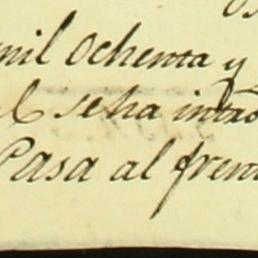 mil ochenta y
se ha intro
Pasa al frent